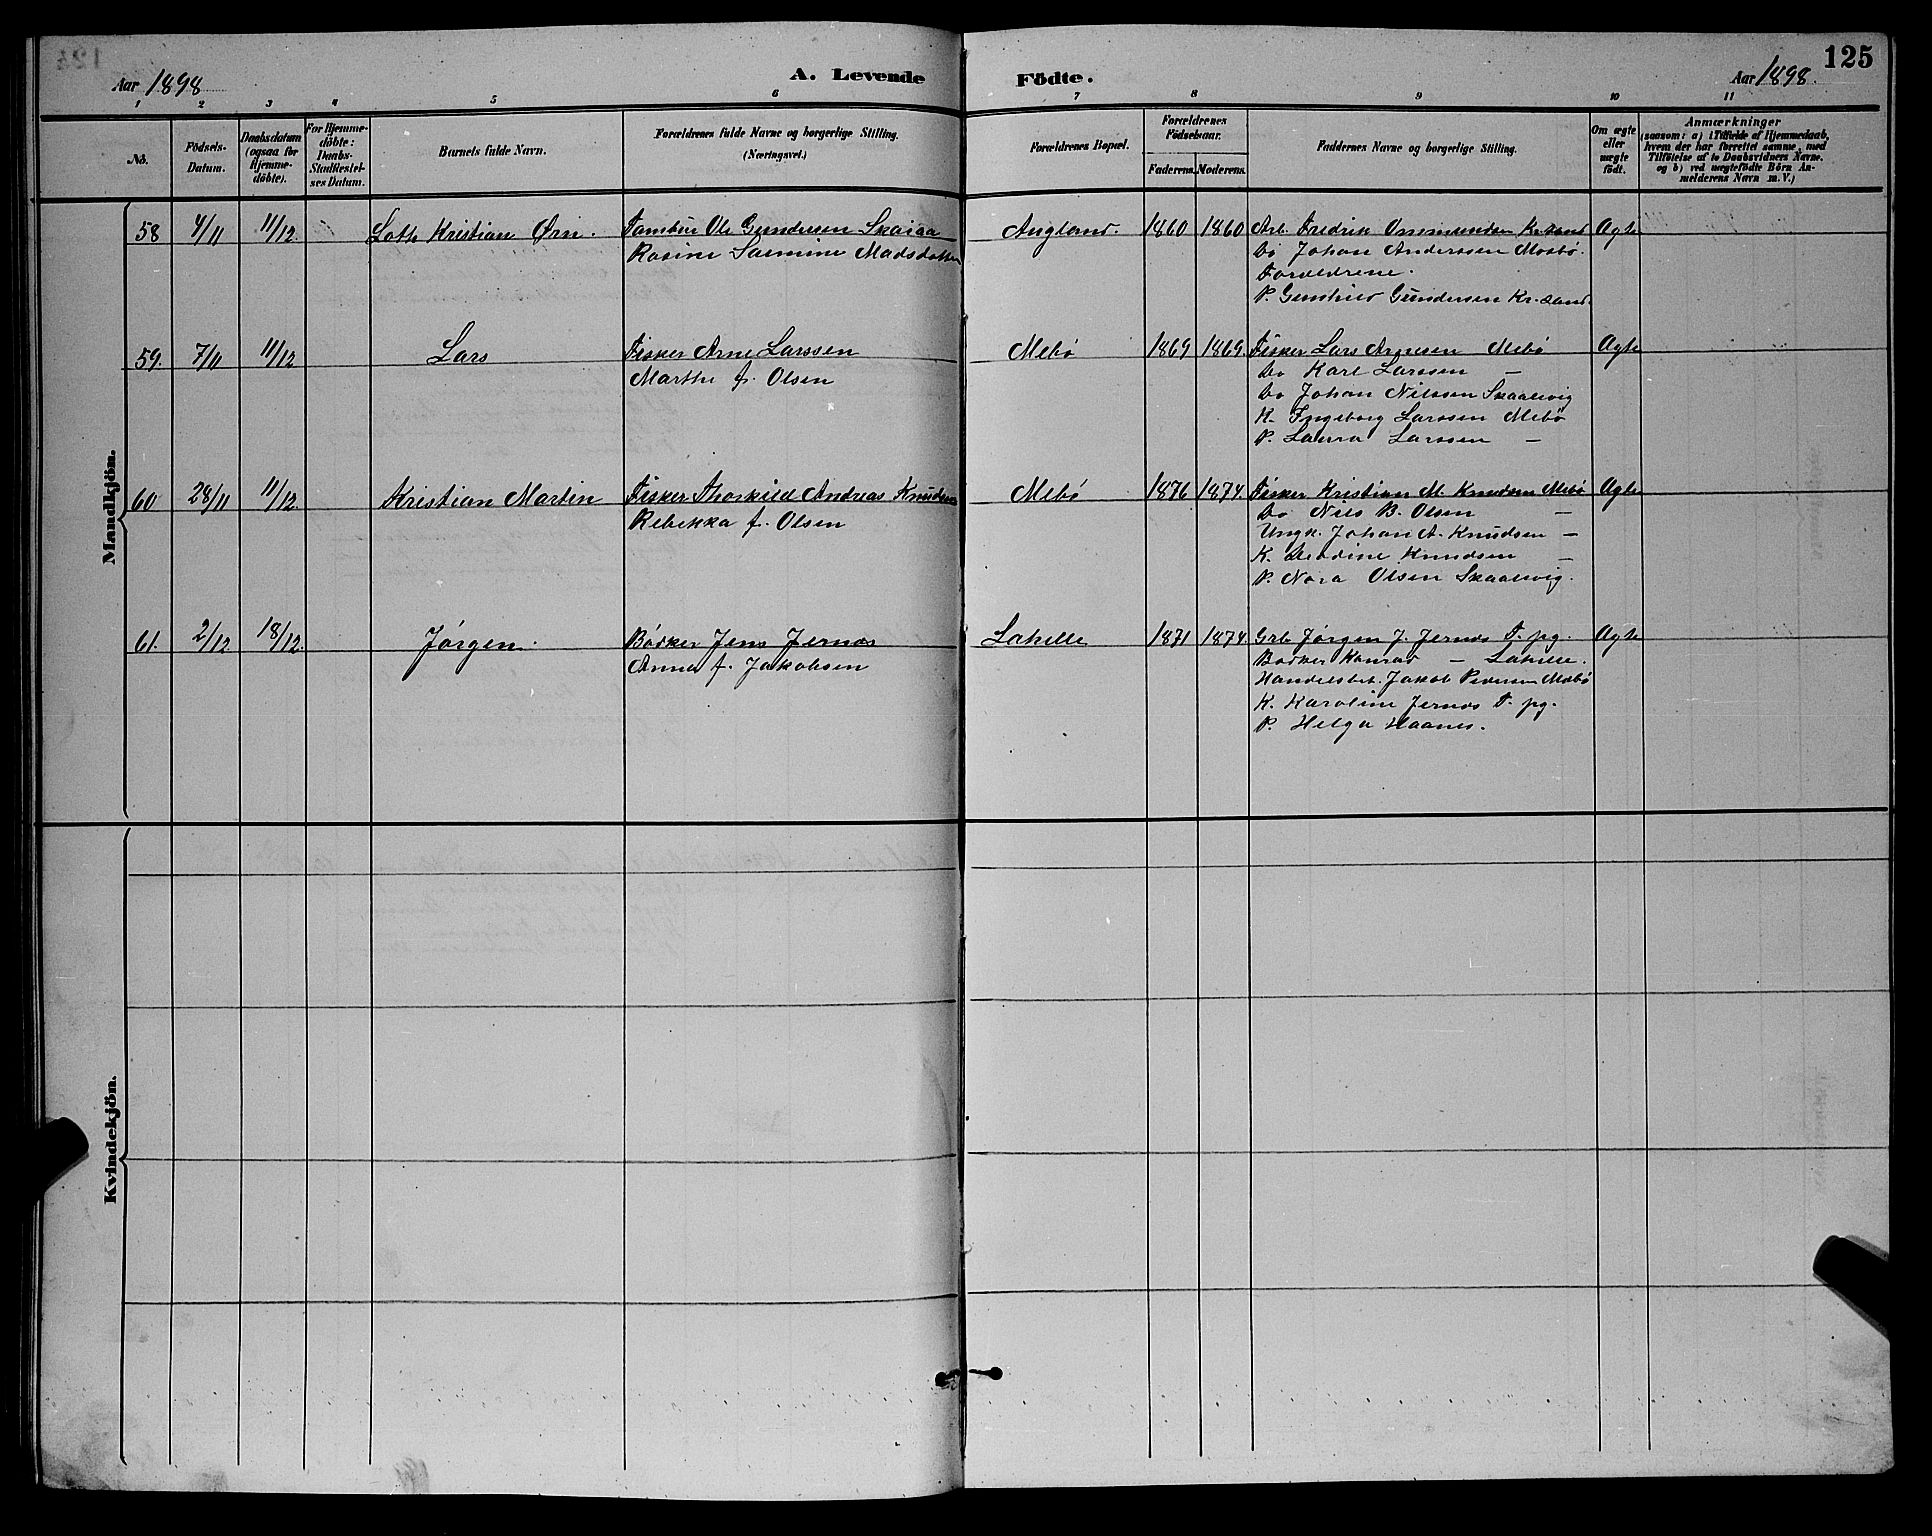 Aar 1898
A. Levende Födte.
Aar 1898.
125
1 2 3 4 5 6 7 8 9 10 11
No.
Födsels-
Datum.
Daabsdatum
(ogsaa for
Hjemme-
döbte).
For Hjemme-
döbte:
Daabs-
Stadfæstel-
ses Datum.
Barnets fulde Navn.
Forældrenes fulde Navne og borgerlige Stilling.
(Næringsvei.)
Forældrenes Bopæl.
Forældrenes
Födselsaar.
Faderens. Moderens.
Faddernes Navne og borgerlige Stilling.
Om ægte
eller
uægte
födt.
Anmærkninger
(saasom: a) i Tilfælde af Hjemmedaab,
hvem der har forrettet samme, med
Tilföielse af to Daabsvidners Navne.
og b) ved uægtefödte Börn An-
melderens Navn m. V.)
Mandkjön.
58 4/11 11/12. Loth Kristian Ørn. Tambur Ole Gundersen Skaiaa Augland. 1860 1860 Arb. Fredrik Ommundsen Kr.sand Ægte
Rosine Samine Madsdatter Do Johan Anderssen Mosbø.
Forældrene.
P. Gunhild Gundersen Kr.sand.
59. 7/11 11/12 Lars Fisker Arne Larssen Mebø 1869 1869. Fisker Lars Arnesen Mebø Ægte
Marthe f. Olsen Do Karl Larssen —
Do Johan Nilssen Skaalevig
K. Ingeborg Larssen Mebø
P. Laura Larssen —
60 28/11 11/12. Kristian Martin Fisker Thorkild Andreas Knudsen Mebø 1876 1874. Fisker Kristian M. Knudsen Mebø Ægte
Rebekka f. Olsen Do Nils B. Olsen —
Ungk. Johan A. Knudsen —
K. Knudsen —
P. Nora Olsen Skaalevig.
61. 2/12 18/12. Jørgen. Bødker Jens Jernæs Lahelle 1871 1874. Grb. Jørgen J. Jernæs T. pg. Ægte
Anna f. Jakobsen Bødker Konrad — Lahelle.
Handelsbet. Jakob Pedersen Mebø
K. Karoline Jernæs T. pg.
P. Helga Haanes.
Kvindekjön.